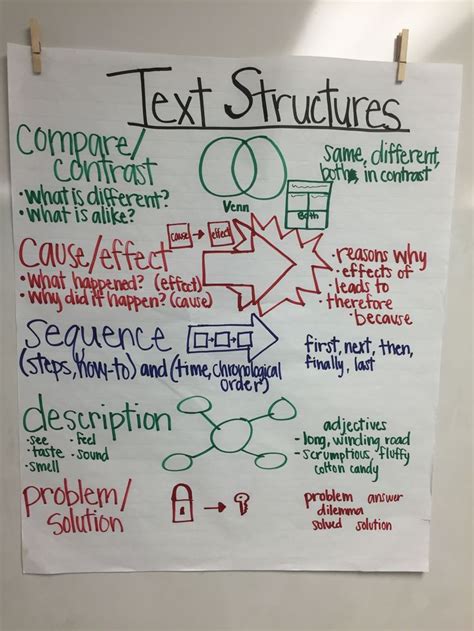 Text Structures
Compare/
contrast
• what is different?
• what is alike?
Venn
Both
same, different,
both, in contrast
cause/effect
• what happened? (effect)
• Why did it happen? (cause)
cause → effect
• reasons why
• effects of
• leads to
• therefore
• because
sequence
(steps, how-to) and (time, chronological
order)
first, next, then,
finally, last
description
• see • feel
• taste • sound
• smell
adjectives
- long, winding road
- scrumptious, fluffy
cotton candy
problem/
solution
problem answer
dilemma
solved solution